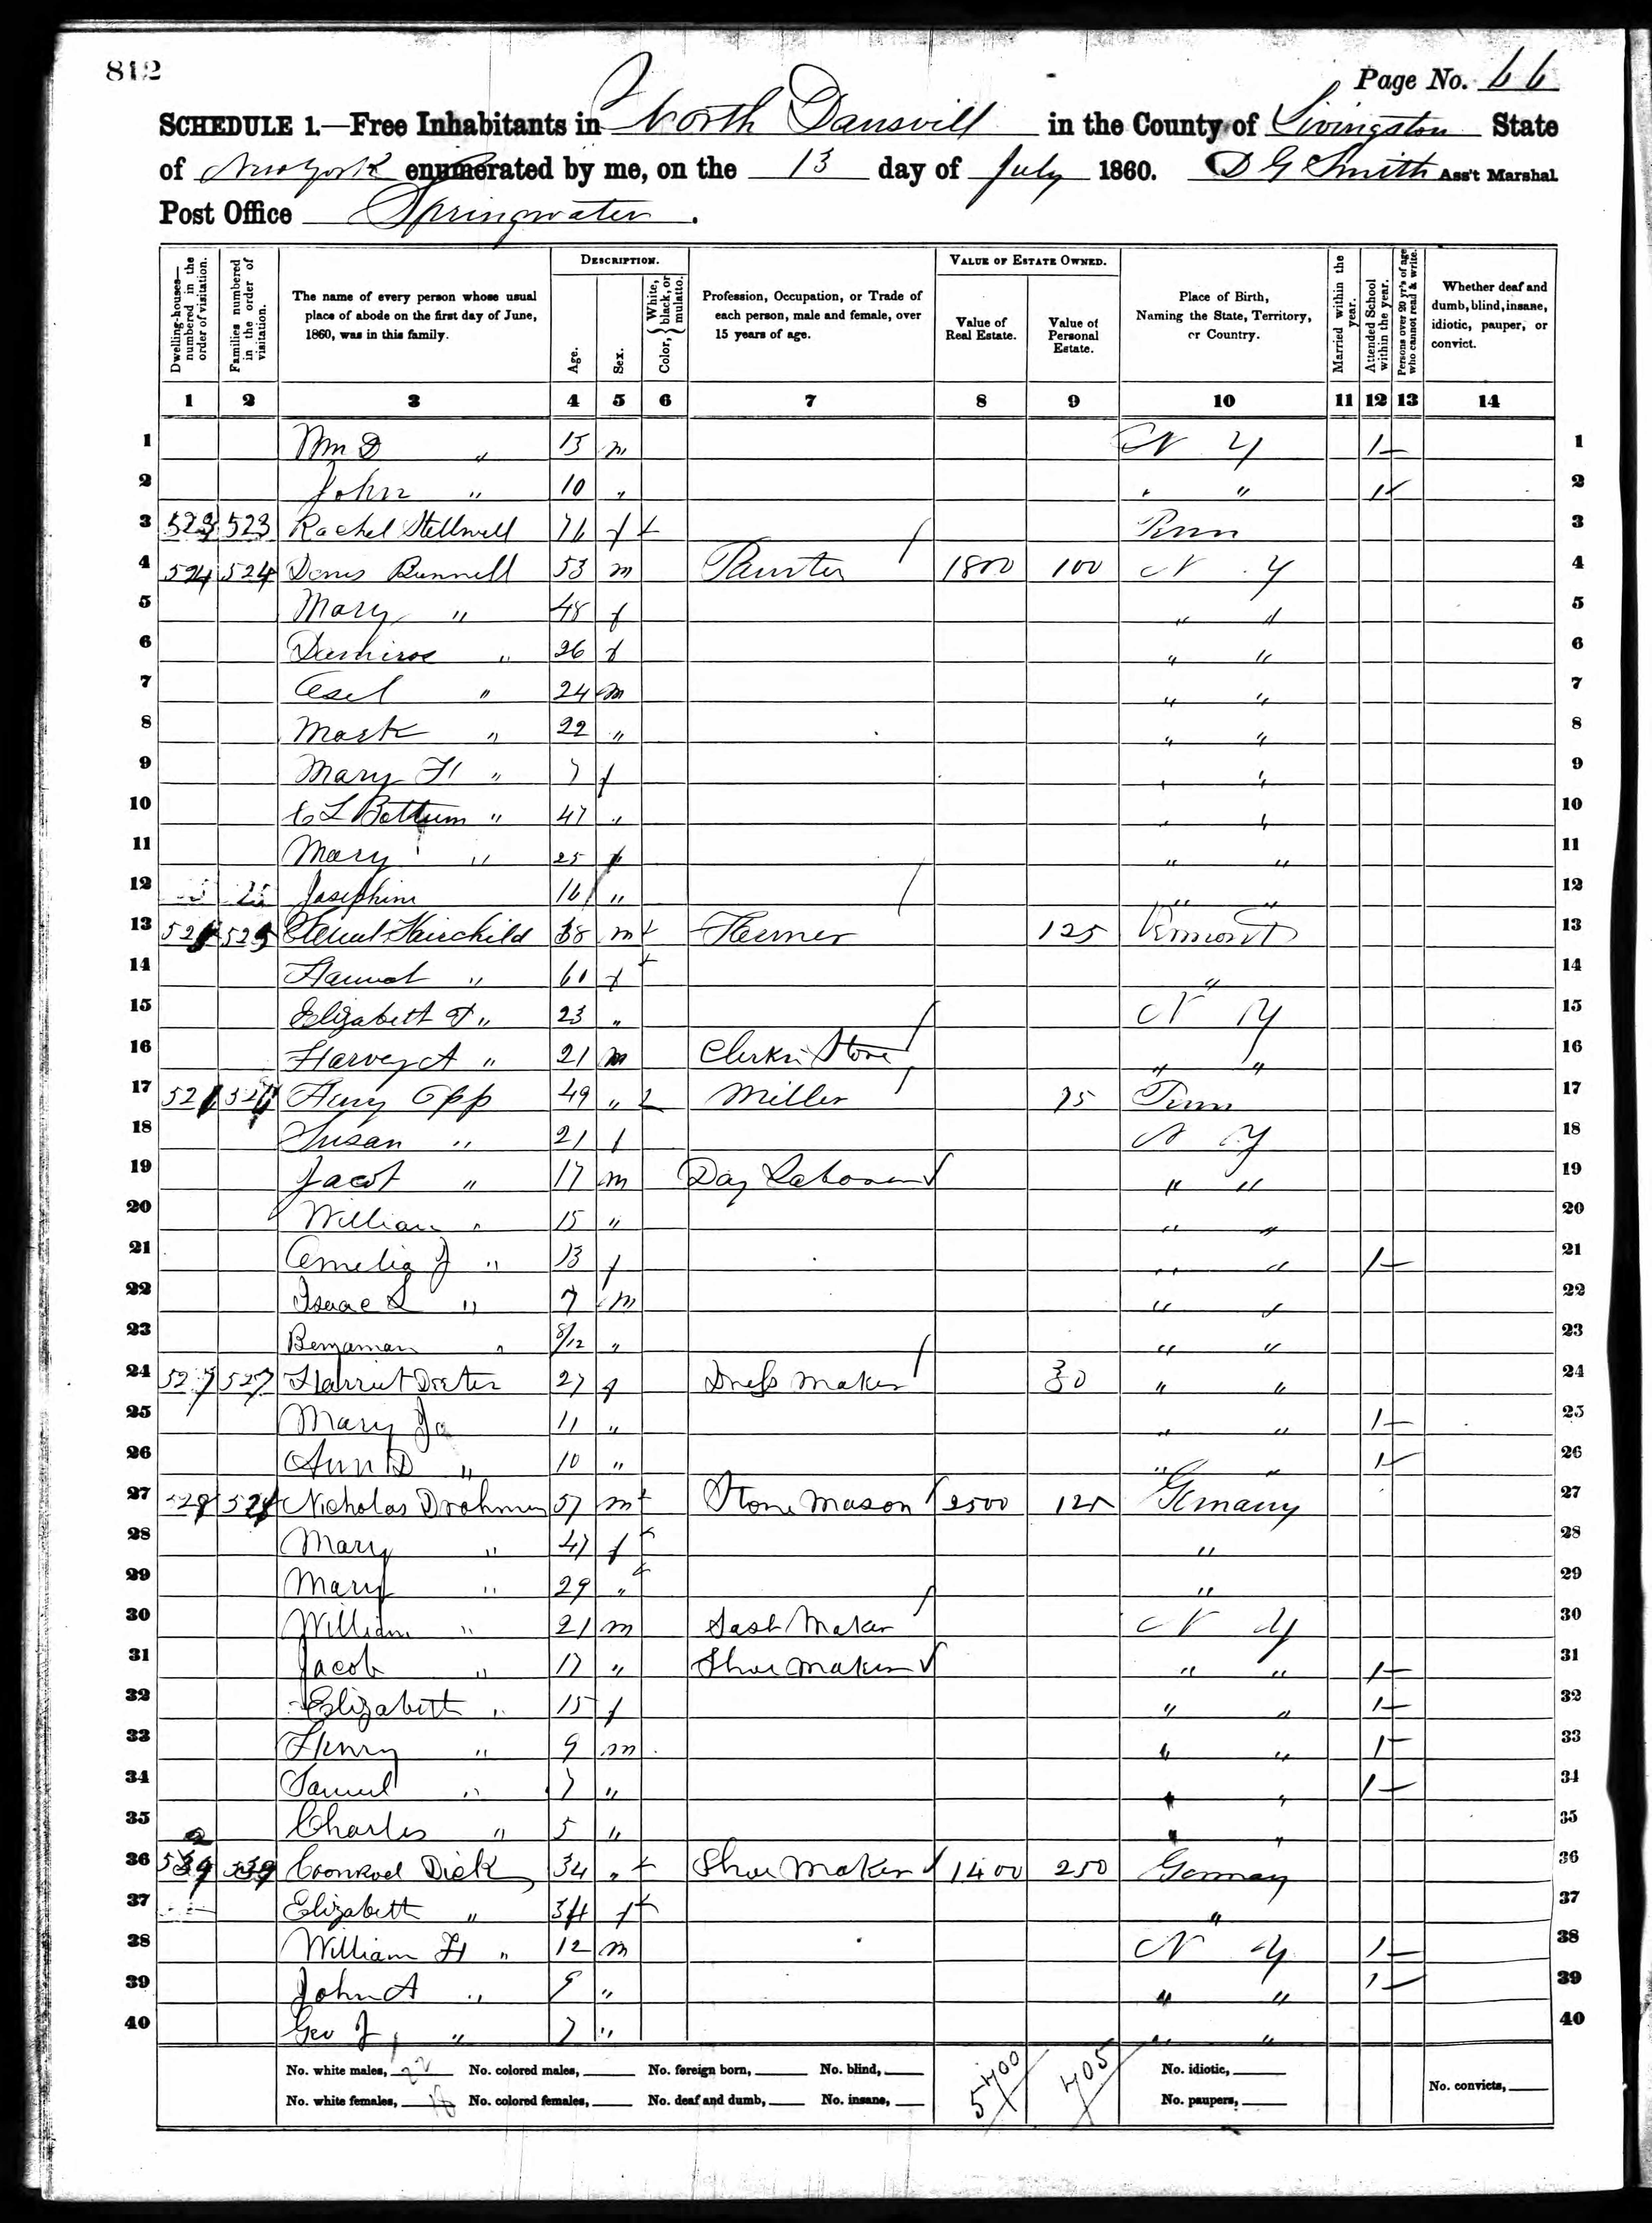 812
Page No. 66
SCHEDULE 1.—Free Inhabitants in North Dansvill in the County of Livingston State
of New York enumerated by me, on the 13 day of July 1860. D G Smith Ass't Marshal
Post Office Springwater.
Dwelling-houses—numbered in the order of visitation.
Families numbered in the order of visitation.
The name of every person whose usual place of abode on the first day of June, 1860, was in this family.
DESCRIPTION.
Age.
Sex.
Color, { White, black, or mulatto.
Profession, Occupation, or Trade of each person, male and female, over 15 years of age.
VALUE OF ESTATE OWNED.
Value of Real Estate.
Value of Personal Estate.
Place of Birth, Naming the State, Territory, or Country.
Married within the year.
Attended School within the year.
Persons over 20 yr's of age who cannot read & write.
Whether deaf and dumb, blind, insane, idiotic, pauper, or convict.
1 2 3 4 5 6 7 8 9 10 11 12 13 14
1 Wm D " 15 m N Y 1 1
2 John " 10 " " " 1 2
3 523 523 Rachel Stellwell 76 f Penn 3
4 524 524 Bunnell 53 m Painter 1800 100 N Y 4
5 Mary " 48 f " " 5
6 " 26 f " " 6
7 Asel " 24 m " " 7
8 Mark " 22 " " " 8
9 Mary H " 7 f " " 9
10 L Bottum " 47 " " " 10
11 Mary " 25 f " " 11
12 Josephine 16 " " " 12
13 525 525 Fairchild 68 m Farmer 125 Vermont 13
14 Hannah " 61 f " 14
15 Elizabeth F " 23 " N Y 15
16 Harvey A " 21 m Clerk in Store " " 16
17 526 526 Henry Opp 49 " Miller 75 Penn 17
18 Susan " 21 f N Y 18
19 Jacob " 17 m Day Laborer " " 19
20 William " 15 " " " 20
21 Amelia J " 13 f " " 1 21
22 Isaac L " 7 m " " 22
23 Benjaman " 8/12 " " " 23
24 527 527 Harriet 27 f Dress Maker 30 " " 24
25 Mary 11 " " " 1 25
26 Ann D " 10 " " " 1 26
27 528 528 Nicholas 57 m Stone Mason 2500 125 Germany 27
28 Mary " 47 f " 28
29 Mary " 29 " " 29
30 William " 21 m Sash Maker N Y 30
31 Jacob " 17 " Shoe Maker " " 1 31
32 Elizabeth " 15 f " " 1 32
33 Henry " 9 m " " 1 33
34 Samuel " 7 " " " 1 34
35 Charles " 5 " " " 35
36 Dick 34 " Shoe Maker 1400 250 Germany 36
37 Elizabeth " 34 f " 37
38 William H " 12 m N Y 1 38
39 John A " 9 " " " 1 39
40 Geo J " 7 " " " 40
No. white males, 22 No. colored males, No. foreign born, No. blind, 5700 705 No. idiotic,
No. white females, 18 No. colored females, No. deaf and dumb, No. insane, No. paupers, No. convicts,